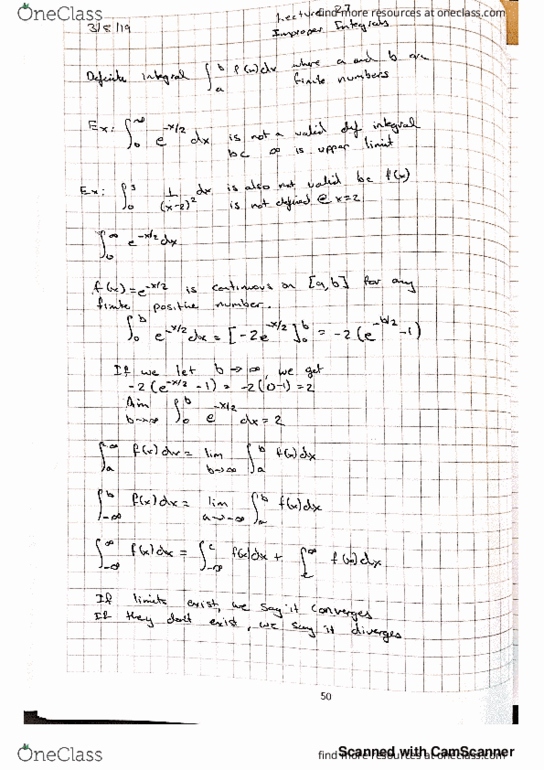 OneClass
find more resources at oneclass.com
3/8/19
Lecture 27
Improper Integrals
Definite Integral ∫_a^b f(x)dx where a and b are
finite numbers
Ex: ∫_0^∞ e^{-x/2} dx is not a valid def integral
bc ∞ is upper limit
Ex: ∫_0^3 1/(x-2)^2 dx is also not valid bc f(x)
is not defined @ x=2
∫_0^∞ e^{-x/2} dx
f(x)=e^{-x/2} is continuous on [a,b] for any
finite positive number.
∫_0^b e^{-x/2} dx = [-2e^{-x/2}]_0^b = -2(e^{-b/2}-1)
If we let b→∞, we get
-2(e^{-x/2}-1) = -2(0-1)=2
lim b→∞ ∫_0^b e^{-x/2} dx=2
∫_a^∞ f(x)dx = lim b→∞ ∫_a^b f(x)dx
∫_{-∞}^b f(x)dx = lim a→-∞ ∫_a^b f(x)dx
∫_{-∞}^∞ f(x)dx = ∫_{-∞}^c f(x)dx + ∫_c^∞ f(x)dx
If limits exist, we say it converges
If they don't exist, we say it diverges
50
OneClass
find more resources at oneclass.com
Scanned with CamScanner